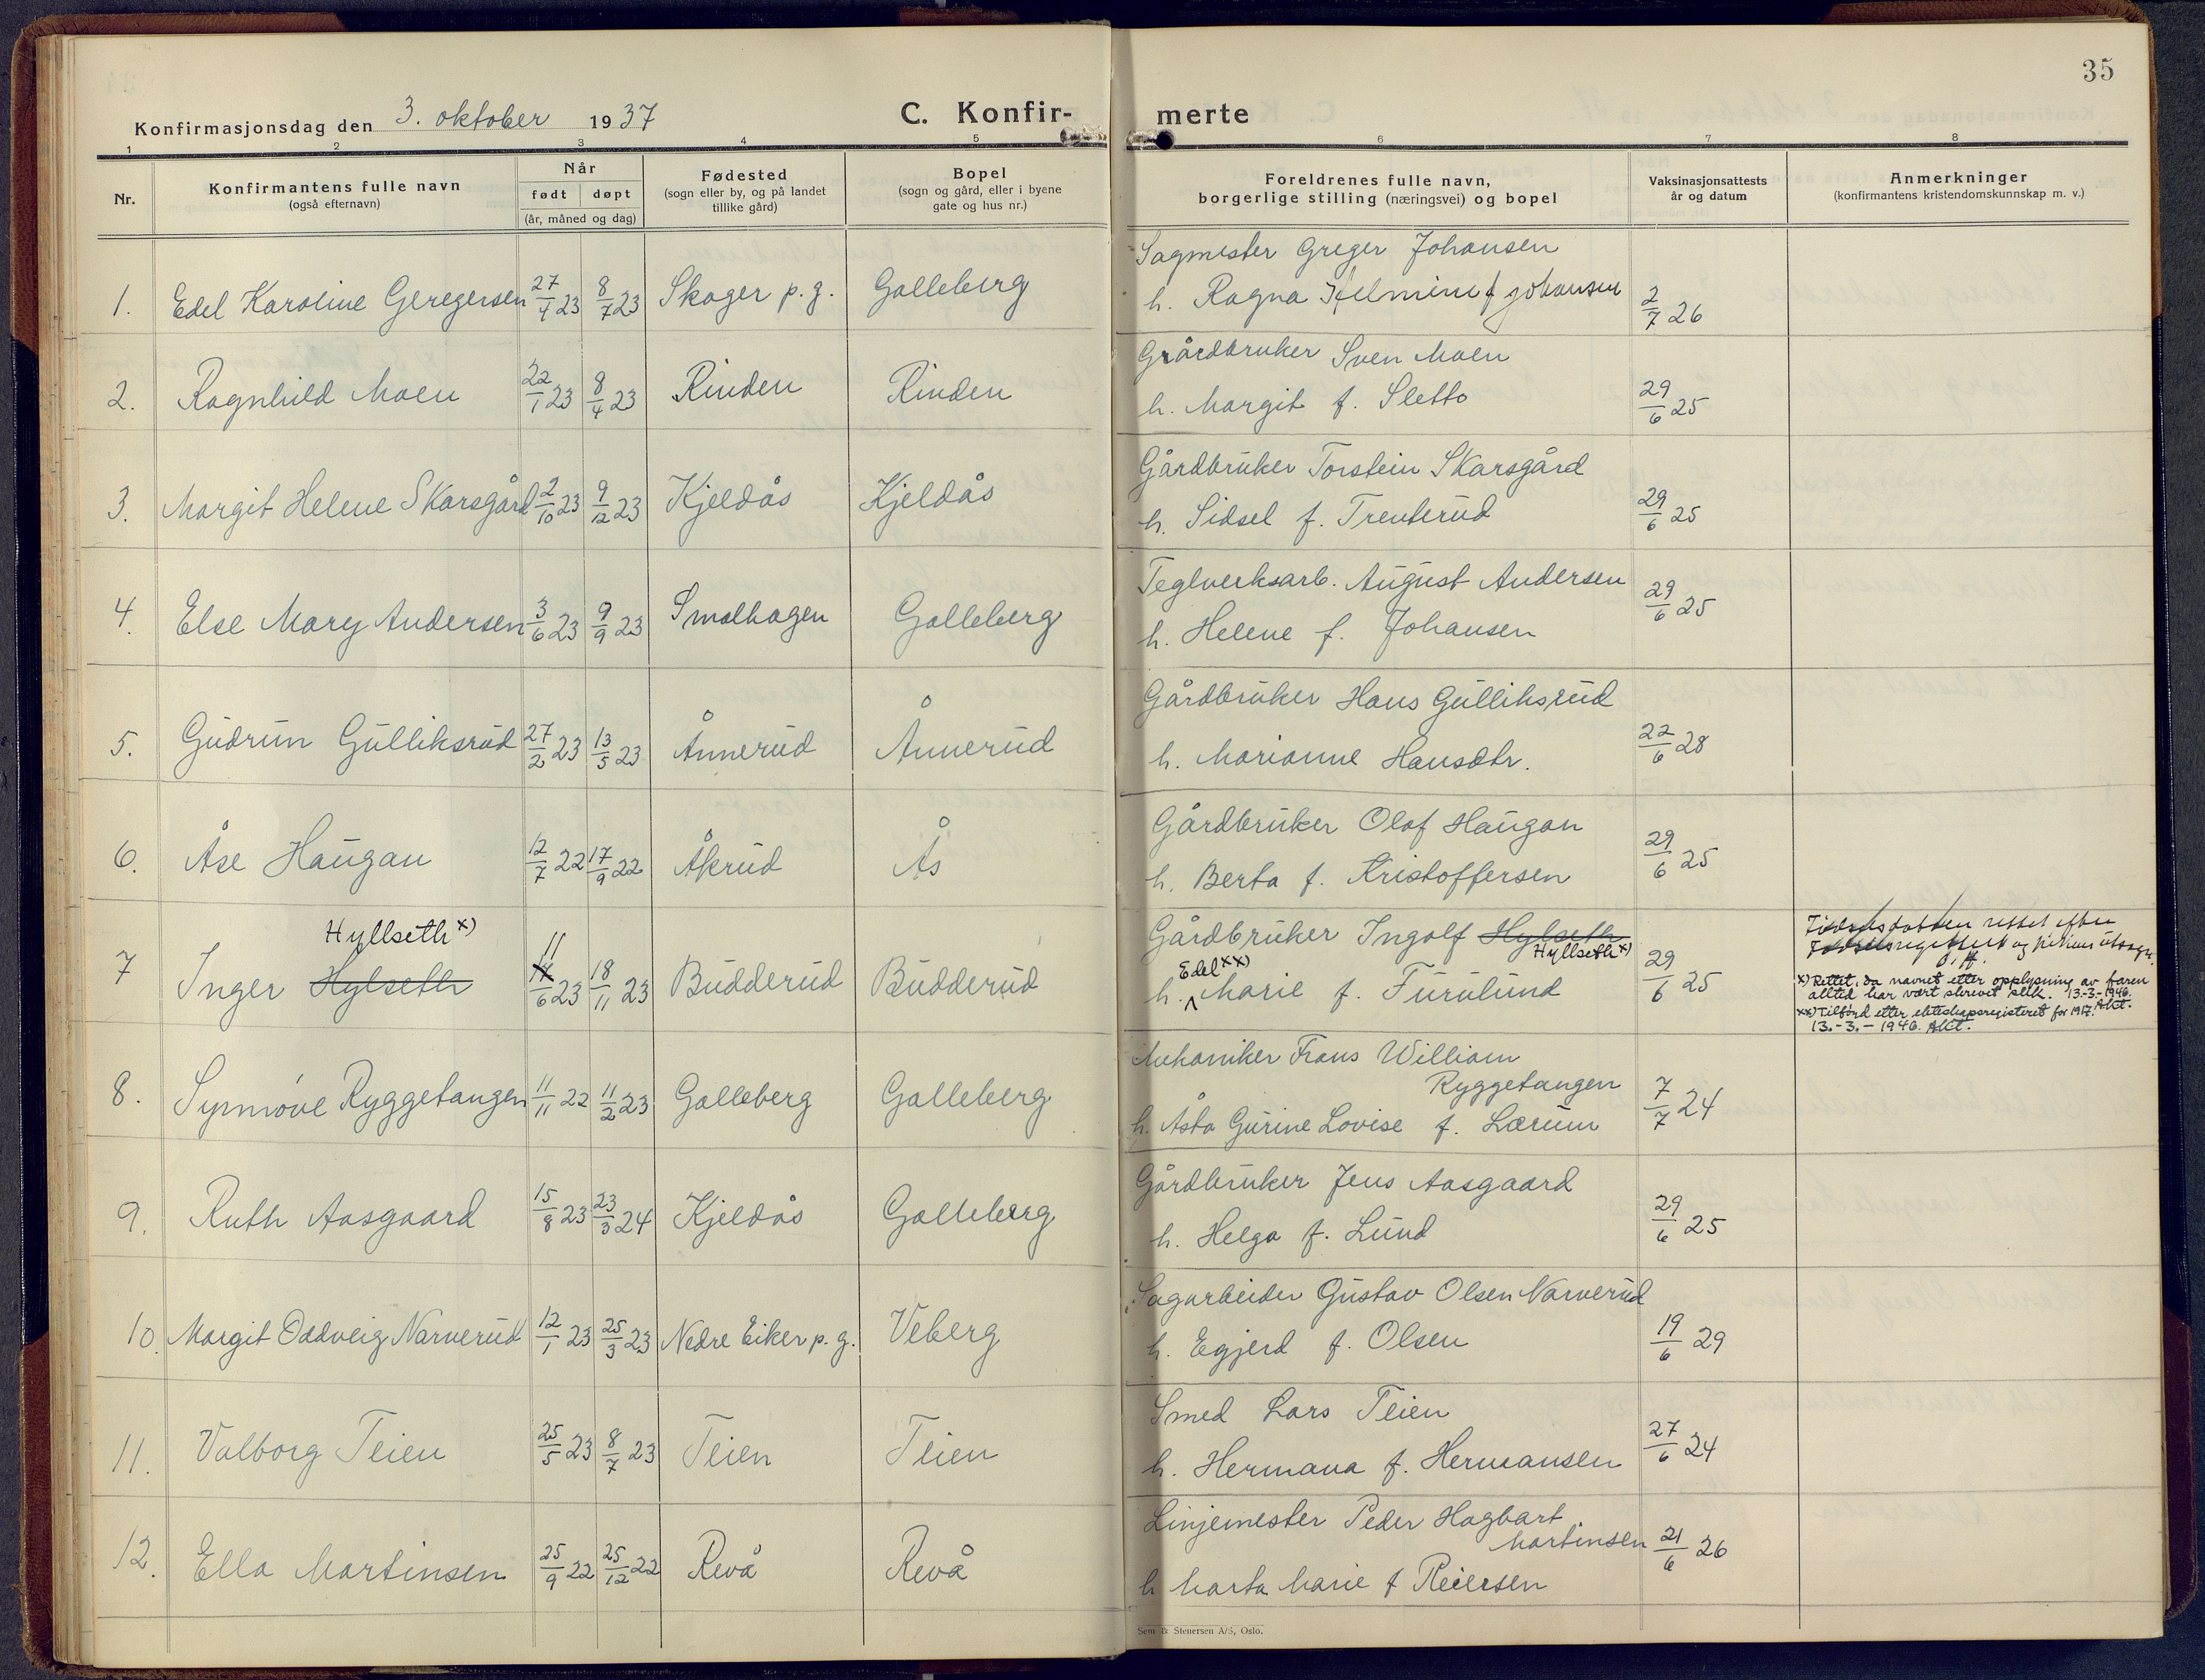 35
Konfirmasjonsdag den 3. oktober 1937
C. Konfirmerte
1 2 3 4 5 6 7 8
Nr. Konfirmantens fulle navn (også efternavn) Når født døpt (år, måned og dag) Fødested (sogn eller by, og på landet tillike gård) Bopel (sogn og gård, eller i byene gate og hus nr.) Foreldrenes fulle navn, borgerlige stilling (næringsvei) og bopel Vaksinasjonsattests år og datum Anmerkninger (konfirmantens kristendomskunnskap m. v.)
Sagmester Greger Johansen
1. Edel Karoline Geregersen 27/4 23 8/7 23 Skoger p. g. Galleberg h. Ragna Helmine f Johansen 2/7 26
Gårdbruker Sven Moen
2. Ragnhild Moen 22/1 23 8/4 23 Rinden Rinden h. Margit f. Sletto 29/6 25
Gårdbruker Torstein Skarsgård
3. Margit Helene Skarsgård 2/10 23 9/12 23 Kjeldås Kjeldås h. Sidsel f. Trenterud 29/6 25
Teglverksarb. August Andersen
4. Else Mary Andersen 3/6 23 9/9 23 Smalhagen Galleberg h. Helene f. Johansen 29/6 25
Gårdbruker Hans Gulliksrud
5. Gudrun Gulliksrud 27/2 23 13/5 23 Ånnerud Ånnerud h. Marianne Hansdtr. 22/6 28
Gårdbruker Olaf Haugan
6. Åse Haugan 12/7 22 17/9 22 Åkrud Ås h. Berta f. Kristoffersen 29/6 25
Hyllseth x) 11 Gårdbruker Ingolf Hylseth Hyllseth x)
7 Inger Hylseth 6 23 18/11 23 Budderud Budderud h. Edel xx) Marie f. Furulund 29/6 25
rettet efter
og
x) Rettet, da navnet etter opplysning av faren
alltid har vært skrevet slik. 13.-3.-1946.
xx) Tilførd etter ekteskapsregisteret for 1917.
13.-3.-1946.
Mekaniker Frans William
Ryggetangen
8. Synnøve Ryggetangen 11/11 22 11/2 23 Galleberg Galleberg h. Åsta Gurine Lovise f. Lærum 7/7 24
Gårdbruker Jens Aasgaard
9. Ruth Aasgaard 15/8 23 23/3 24 Kjeldås Galleberg h. Helga f. Lund 29/6 25
Sagarbeider Gustav Olsen Narverud
10. Margit Oddveig Narverud 12/1 23 25/3 23 Nedre Eiker p. g. Veberg h. Egjerd f. Olsen 19/6 29
Smed Lars Teien
11. Valborg Teien 25/5 23 8/7 23 Teien Teien h. Hermana f. Hermansen 27/6 24
Linjemester Peder Hagbart
Martinsen
12. Ella Martinsen 25/9 22 25/12 22 Revå Revå h Marta Marie f Reiersen 21/6 26
Sem & Stenersen A/S, Oslo.